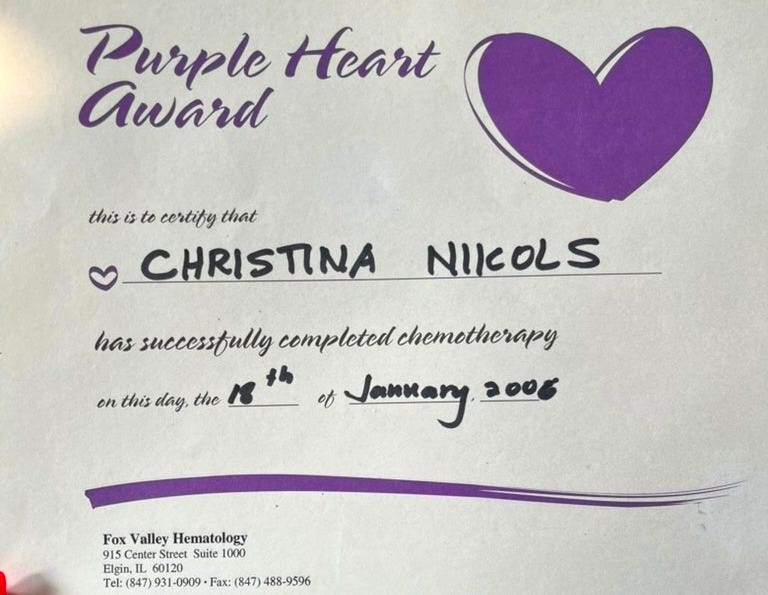 Purple Heart
Award
this is to certify that
CHRISTINA NIKOLS
has successfully completed chemotherapy
on this day, the 18th of January, 2006
Fox Valley Hematology
915 Center Street Suite 1000
Elgin, IL 60120
Tel: (847) 931-0909 • Fax: (847) 488-9596